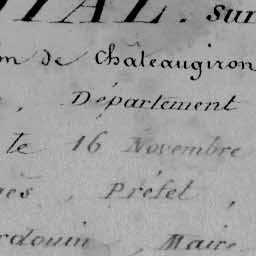 IAL. sur
de Chateaugiron
, Département
le 16 Novembre
, Préfet,
, Maire